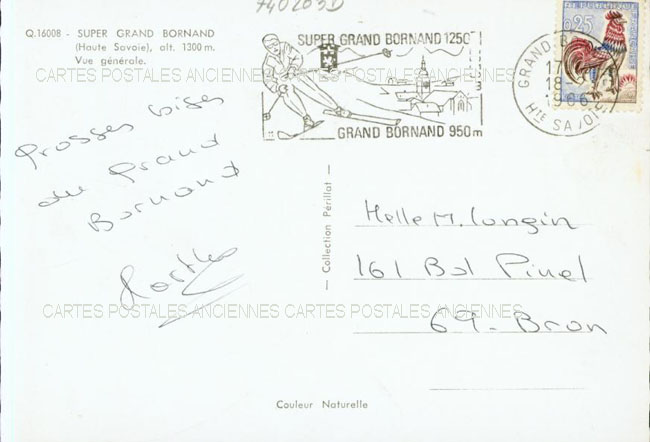 740203D
Q.16008 - SUPER GRAND BORNAND
(Haute Savoie), alt. 1300 m.
Vue générale.
SUPER GRAND BORNAND 1250
GRAND BORNAND 950m
GRAND-B
17
18-
1966
HTE SAVOIE
0,25
CARTES POSTALES ANCIENNES CARTES POSTALES ANCIENNES
Grosses bises
du Grand
Bornand
— Collection Périllat —
Melle M. Longin
161 Bd Pinel
69 - Bron
CARTES POSTALES ANCIENNES CARTES POSTALES ANCIENNES
Couleur Naturelle